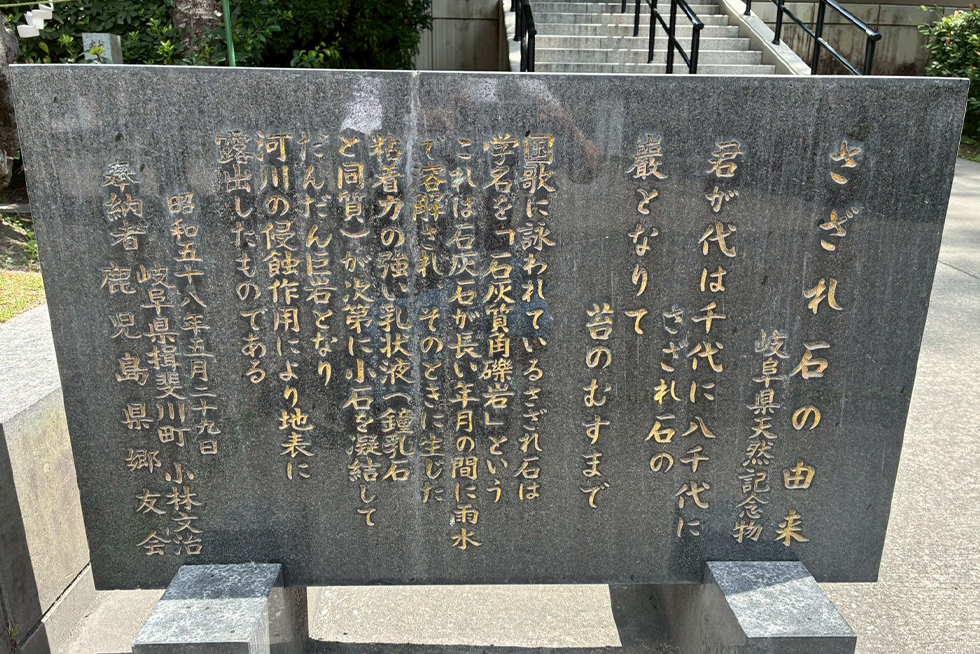 さざれ石の由来
岐阜県天然記念物
君が代は千代に八千代に
さざれ石の
巌となりて
苔のむすまで
国歌に詠われているさざれ石は
学名を「石灰質角礫岩」という
これは石灰石が長い年月の間に雨水
で溶解され そのときに生じた
粘着力の強い乳状液(鐘乳石
と同質)が次第に小石を凝結して
だんだん巨岩となり
河川の侵蝕作用により地表に
露出したものである
昭和五十八年五月二十九日
岐阜県揖斐川町 小林文治
奉納者鹿児島県郷友会